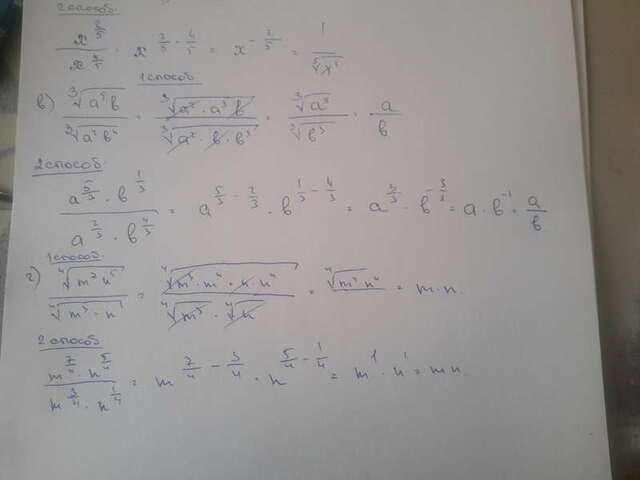 2 способ.
x^{2/5} / x^{4/5} = x^{2/5 - 4/5} = x^{-2/5} = 1 / ⁵√x²
1 способ
в) ³√(a⁵b) / ³√(a²b⁴) = ³√(a²·a³b) / ³√(a²·b·b³) = ³√a³ / ³√b³ = a/b
2 способ.
a^{5/3}·b^{1/3} / a^{2/3}·b^{4/3} = a^{5/3 - 2/3}·b^{1/3 - 4/3} = a^{3/3}·b^{-3/3} = a·b^{-1} = a/b
1 способ
г) ⁴√(m⁷n⁵) / ⁴√(m³·n) = ⁴√(m³·m⁴·n·n⁴) / ⁴√m³·⁴√n = ⁴√(m⁴n⁴) = m·n.
2 способ
m^{7/4}·n^{5/4} / m^{3/4}·n^{1/4} = m^{7/4 - 3/4}·n^{5/4 - 1/4} = m¹·n¹ = mn.